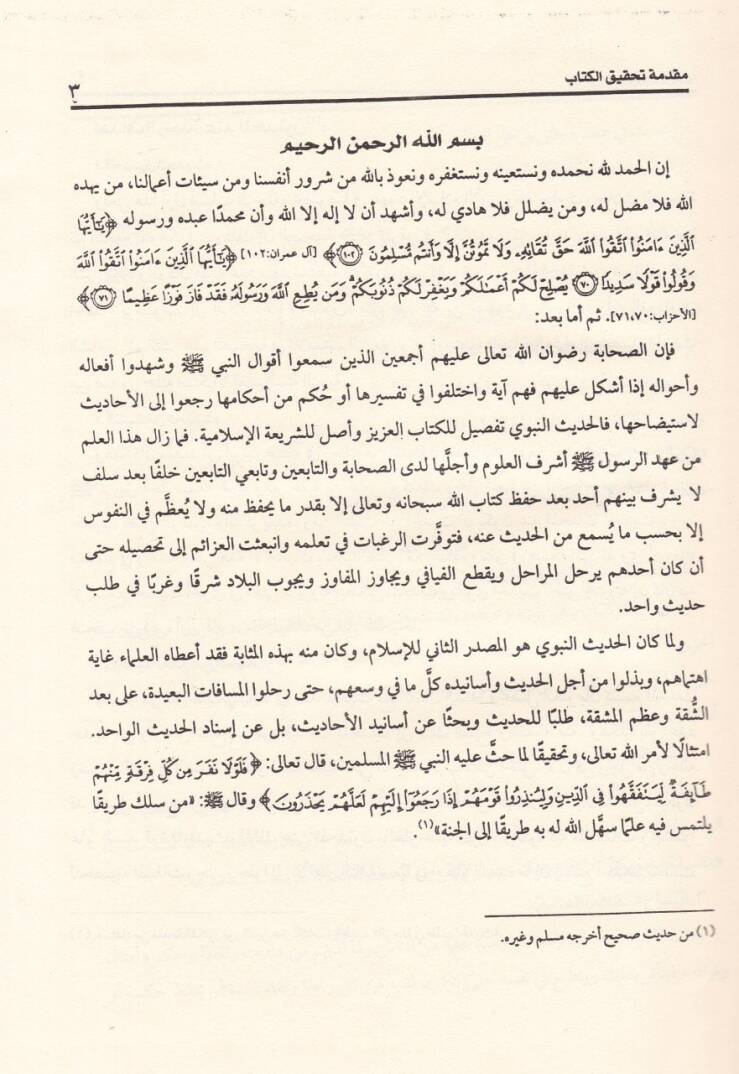 مقدمة تحقيق الكتاب
٣
بسم الله الرحمن الرحيم
إن الحمد لله نحمده ونستعينه ونستغفره ونعوذ بالله من شرور أنفسنا ومن سيئات أعمالنا، من يهده
الله فلا مضل له، ومن يضلل فلا هادي له، وأشهد أن لا إله إلا الله وأن محمدًا عبده ورسوله ﴿يَٰٓأَيُّهَا
ٱلَّذِينَ ءَامَنُوا۟ ٱتَّقُوا۟ ٱللَّهَ حَقَّ تُقَاتِهِۦ وَلَا تَمُوتُنَّ إِلَّا وَأَنتُم مُّسْلِمُونَ ١٠٢﴾ [آل عمران:١٠٢] ﴿يَٰٓأَيُّهَا ٱلَّذِينَ ءَامَنُوا۟ ٱتَّقُوا۟ ٱللَّهَ
وَقُولُوا۟ قَوْلًا سَدِيدًا ٧٠ يُصْلِحْ لَكُمْ أَعْمَٰلَكُمْ وَيَغْفِرْ لَكُمْ ذُنُوبَكُمْ ۗ وَمَن يُطِعِ ٱللَّهَ وَرَسُولَهُۥ فَقَدْ فَازَ فَوْزًا عَظِيمًا ٧١﴾
[الأحزاب:٧١،٧٠]. ثم أما بعد:
فإن الصحابة رضوان الله تعالى عليهم أجمعين الذين سمعوا أقوال النبي ﷺ وشهدوا أفعاله
وأحواله إذا أشكل عليهم فهم آية واختلفوا في تفسيرها أو حُكم من أحكامها رجعوا إلى الأحاديث
لاستيضاحها، فالحديث النبوي تفصيل للكتاب العزيز وأصل للشريعة الإسلامية. فما زال هذا العلم
من عهد الرسول ﷺ أشرف العلوم وأجلَّها لدى الصحابة والتابعين وتابعي التابعين خلفًا بعد سلف
لا يشرف بينهم أحد بعد حفظ كتاب الله سبحانه وتعالى إلا بقدر ما يحفظ منه ولا يُعظَّم في النفوس
إلا بحسب ما يُسمع من الحديث عنه، فتوفَّرت الرغبات في تعلمه وانبعثت العزائم إلى تحصيله حتى
أن كان أحدهم يرحل المراحل ويقطع الفيافي ويجاوز المفاوز ويجوب البلاد شرقًا وغربًا في طلب
حديث واحد.
ولما كان الحديث النبوي هو المصدر الثاني للإسلام، وكان منه بهذه المثابة فقد أعطاه العلماء غاية
اهتمامهم، وبذلوا من أجل الحديث وأسانيده كلَّ ما في وسعهم، حتى رحلوا المسافات البعيدة، على بعد
الشُّقة وعظم المشقة، طلبًا للحديث وبحثًا عن أسانيد الأحاديث، بل عن إسناد الحديث الواحد.
امتثالًا لأمر الله تعالى، وتحقيقًا لما حثَّ عليه النبي ﷺ المسلمين، قال تعالى: ﴿فَلَوْلَا نَفَرَ مِن كُلِّ فِرْقَةٍ مِّنْهُمْ
طَآئِفَةٌ لِّيَتَفَقَّهُوا۟ فِى ٱلدِّينِ وَلِيُنذِرُوا۟ قَوْمَهُمْ إِذَا رَجَعُوٓا۟ إِلَيْهِمْ لَعَلَّهُمْ يَحْذَرُونَ﴾ وقال ﷺ: «من سلك طريقًا
يلتمس فيه علمًا سهَّل الله له به طريقًا إلى الجنة»(١).
(١) من حديث صحيح أخرجه مسلم وغيره.